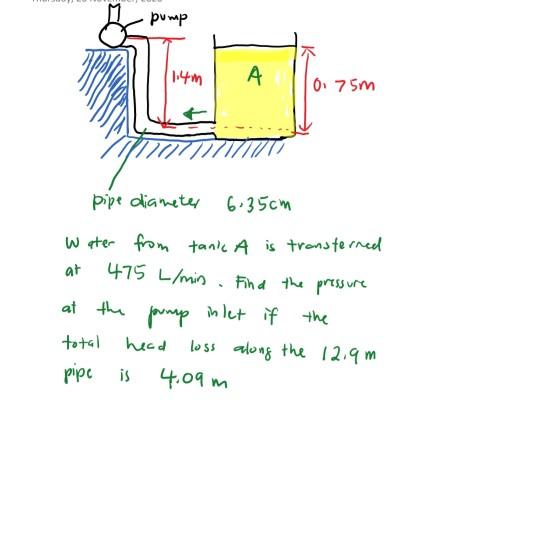 Thursday, 26 November, 2020
pump
1.4m
A
0.75m
pipe diameter 6.35cm
Water from tank A is transferred
at 475 L/min. Find the pressure
at the pump inlet if the
total head loss along the 12.9m
pipe is 4.09m